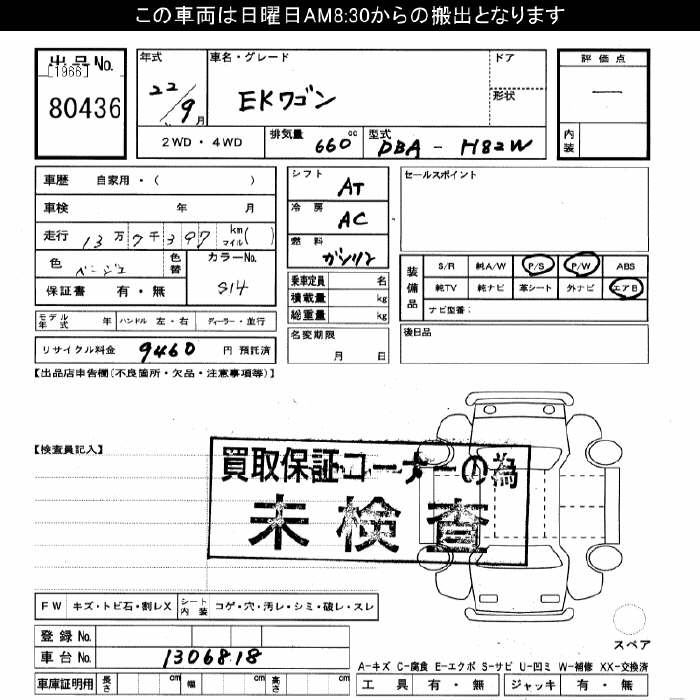 この車両は日曜日AM8:30からの搬出となります
出品No.
[1966]
80436
年式
22/9月
車名・グレード
EKワゴン
ドア
形状
評価点
—
内装
2WD・4WD
排気量 660cc
型式 DBA-H82W
車歴 自家用・( )
車検 年 月
走行 13万7千397 km マイル( )
色 ベージュ 色替
カラーNo. S14
保証書 有・無
シフト AT
冷房 AC
燃料 ガソリン
乗車定員 名
積載量 kg
総重量 kg
セールスポイント
装備品
S/R 純A/W P/S P/W ABS
純TV 純ナビ 革シート 外ナビ エアB
ナビ型番:
モデル年式 年 ハンドル 左・右 ディーラー・並行
名変期限 月 日
後日品
リサイクル料金 9460 円 預託済
【出品店申告欄(不良箇所・欠品・注意事項等)】
【検査員記入】
買取保証コーナーの為
未検査
FW キズ・トビ石・割レX シート内装 コゲ・穴・汚レ・シミ・破レ・スレ
スペア
登録No.
車台No. 1306818
A-キズ C-腐食 E-エクボ S-サビ U-凹ミ W-補修 XX-交換済
車庫証明用 長さ cm 幅 cm 高さ cm
工具 有・無 ジャッキ 有・無